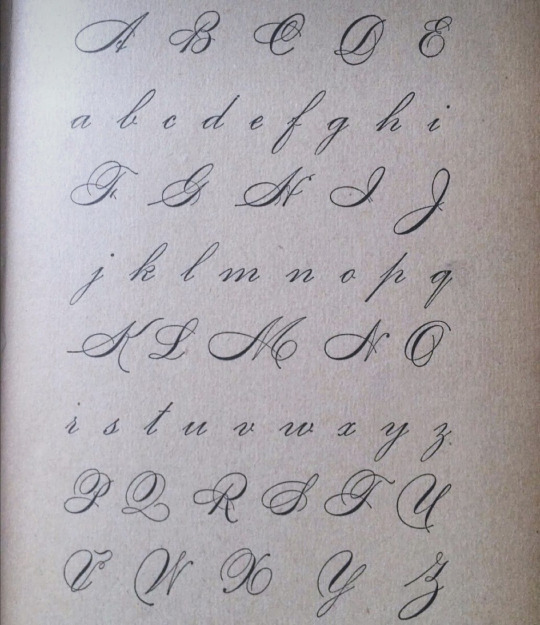 A B C D E
a b c d e f g h i
F G H I J
j k l m n o p q
K L M N O
r s t u v w x y z
P Q R S T U
V W X Y Z